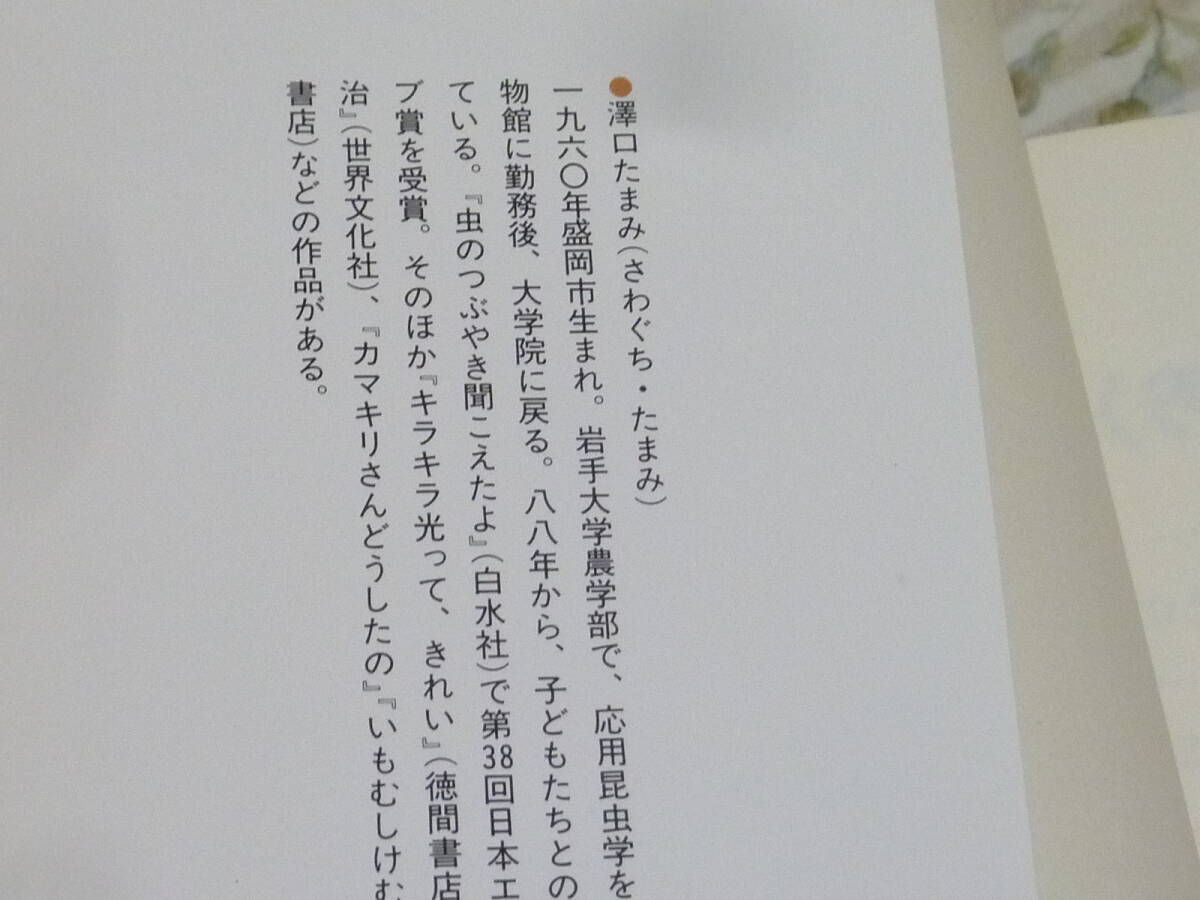 ●澤口たまみ(さわぐち・たまみ)
一九六〇年盛岡市生まれ。岩手大学農学部で、応用昆虫学を
物館に勤務後、大学院に戻る。八八年から、子どもたちとの
ている。『虫のつぶやき聞こえたよ』(白水社)で第38回日本エ
ブ賞を受賞。そのほか『キラキラ光って、きれい』(徳間書店
治』(世界文化社)、『カマキリさんどうしたの』『いもむしけむ
書店)などの作品がある。